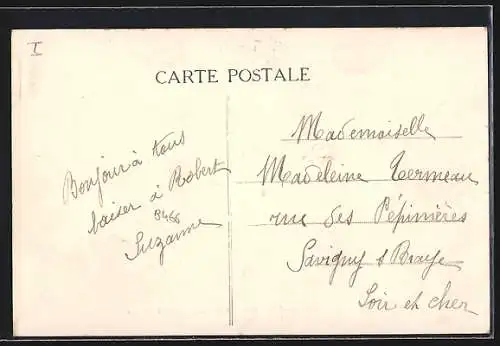 I
CARTE POSTALE
Bonjour à tous
baiser à Robert
8466
Suzanne
Mademoiselle
Madeleine Termeau
rue des Pépinières
Savigny s Braye
Loir et cher